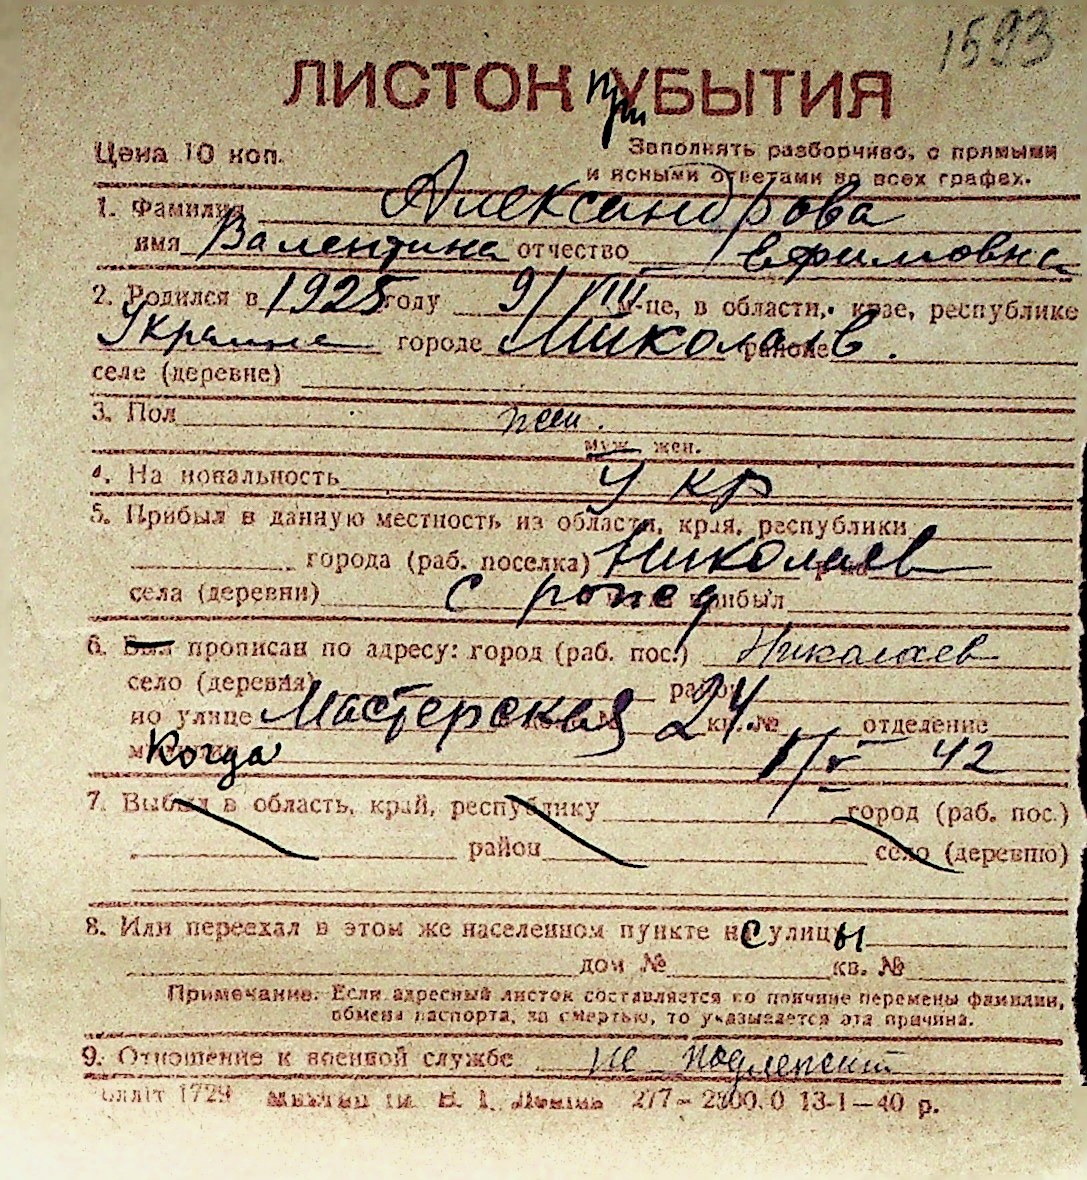 1593
ЛИСТОК при УБЫТИЯ
Цена 10 коп.
Заполнять разборчиво, с прямыми
и ясными ответами во всех графех.
1. Фамилия Александрова
имя Валентина отчество Ефимовна
2. Родился в 1925 году 9/VIII м-це, в области, крае, республике
Украина городе Николаев. районе
селе (деревне)
3. Пол жен.
муж. жен.
4. На иональность Укр
5. Прибыл в данную местность из области, края, республики
города (раб. поселка) Николаев
села (деревни) с рожд прибыл
6. Был прописан по адресу: город (раб. пос.) Николаев
село (деревня) район
по улице Мастерская 24 кв. № отделение
Когда 1/V 42
7. Выбыл в область, край, республику город (раб. пос.)
район село (деревню)
8. Или переехал в этом же населенном пункте с улицы
дом № кв. №
Примечание. Если адресный листок составляется по причине перемены фамилии,
обмена паспорта, за смертью, то указывается эта причина.
9. Отношение к военной службе не подлежит
1729 В. І. Леніна 277—2800.0 13-1—40 р.